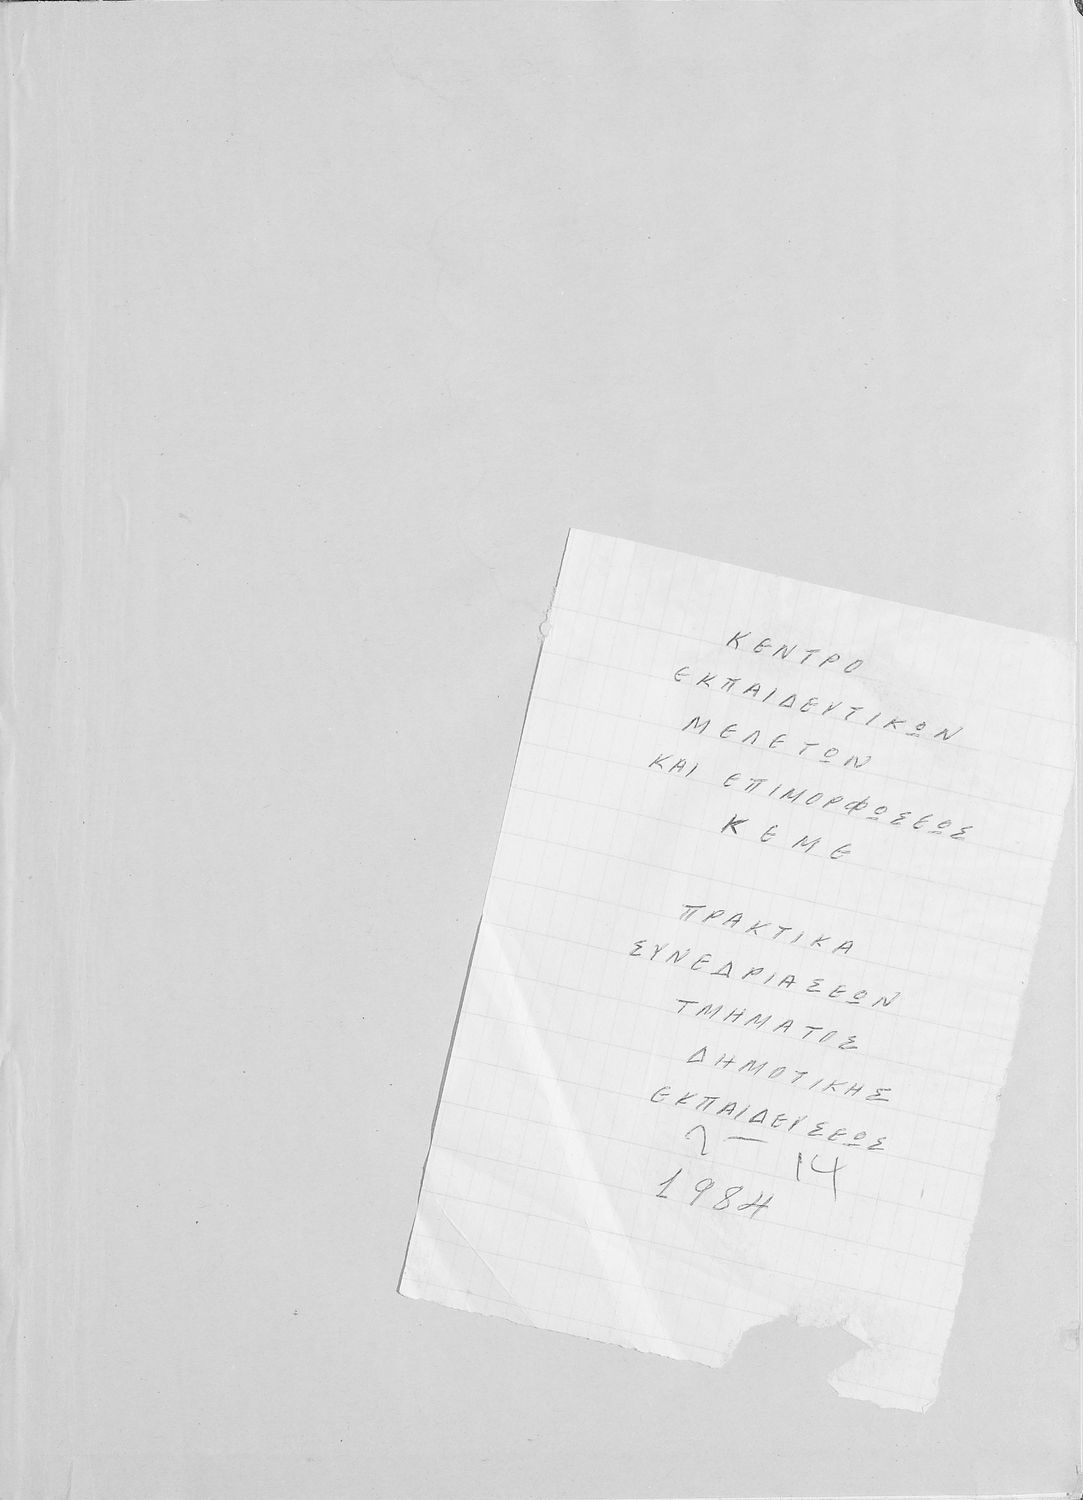 ΚΕΝΤΡΟ
ΕΚΠΑΙΔΕΥΤΙΚΩΝ
ΜΕΛΕΤΩΝ
ΚΑΙ ΕΠΙΜΟΡΦΩΣΕΩΣ
ΚΕΜΕ
ΠΡΑΚΤΙΚΑ
ΣΥΝΕΔΡΙΑΣΕΩΝ
ΤΜΗΜΑΤΟΣ
ΔΗΜΟΤΙΚΗΣ
ΕΚΠΑΙΔΕΥΣΕΩΣ
– 14
1984